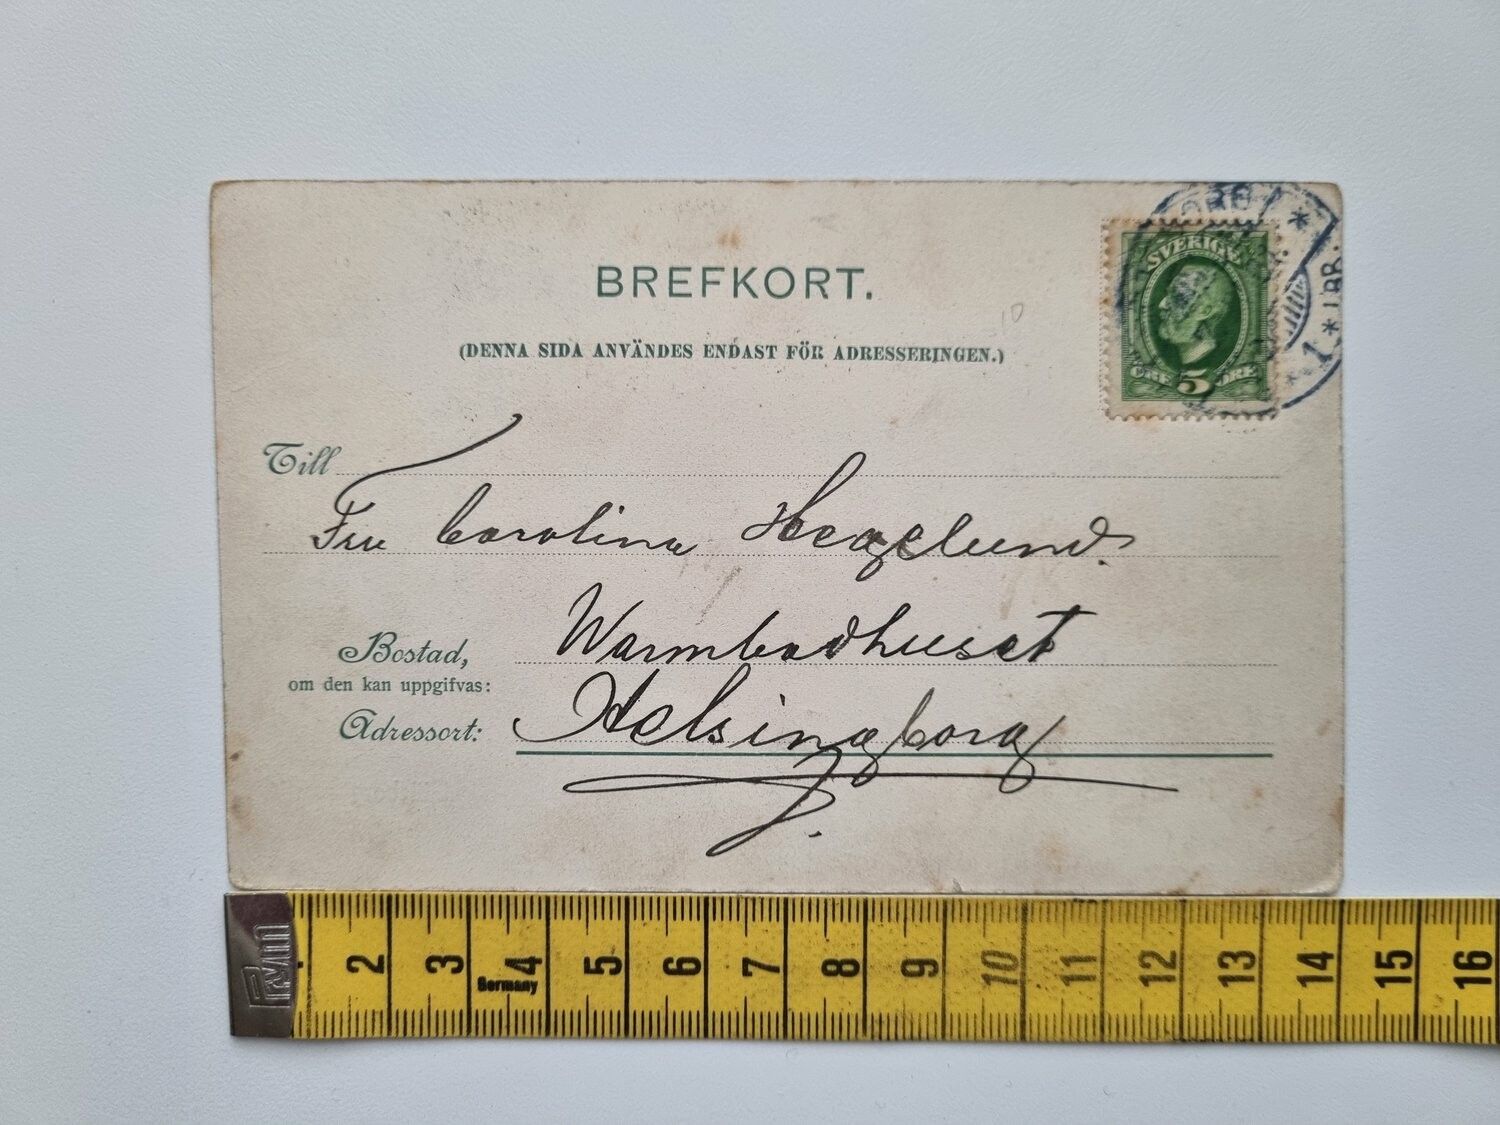 BREFKORT.
(DENNA SIDA ANVÄNDES ENDAST FÖR ADRESSERINGEN.)
SVERIGE
ÖRE 5 ÖRE
10
Till
Fru Carolina Hegelund.
Bostad,
Warmbadhuset
om den kan uppgifvas:
Adressort:
Helsingborg
2 3 4 5 6 7 8 9 10 11 12 13 14 15 16
Germany